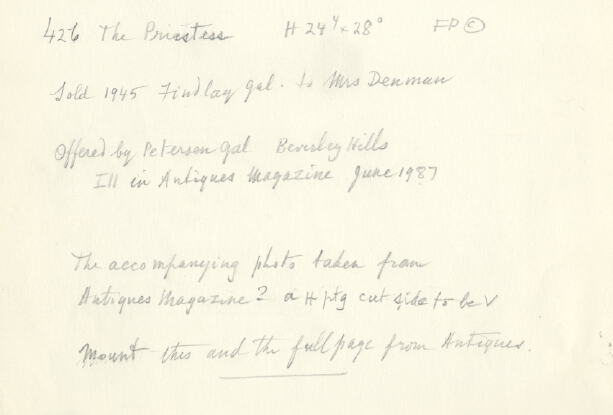 426 The Priestess H 24⁴ x 28⁰ FP ©
Sold 1945 Findlay Gal. to Mrs Denman
Offered by Peterson Gal Beverley Hills
Ill in Antiques Magazine June 1987
The accompanying photo taken from
Antiques Magazine? a H ptg cut side to be V
Mount this and the full page from Antiques.